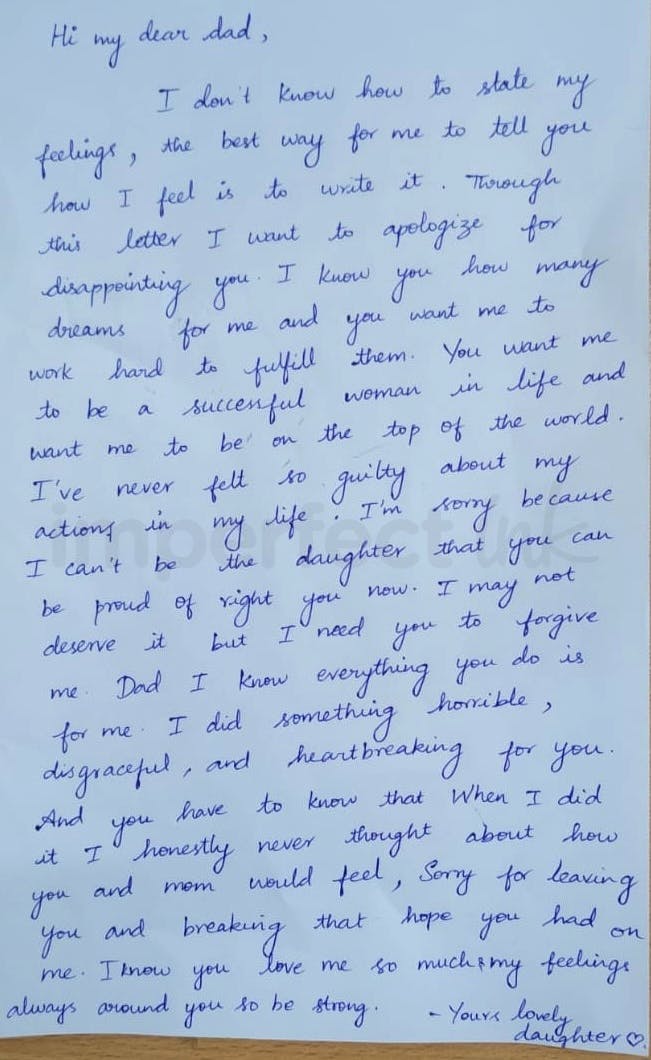 Hi my dear dad,
I don't know how to state my
feelings, the best way for me to tell you
how I feel is to write it. Through
this letter I want to apologize for
disappointing you. I know you how many
dreams for me and you want me to
work hard to fulfill them. You want me
to be a successful woman in life and
want me to be on the top of the world.
I've never felt so guilty about my
actions in my life. I'm sorry because
imperfect ink
I can't be the daughter that you can
be proud of right you now. I may not
deserve it but I need you to forgive
me. Dad I know everything you do is
for me. I did something horrible,
disgraceful, and heartbreaking for you.
And you have to know that When I did
it I honestly never thought about how
you and mom would feel, Sorry for leaving
you and breaking that hope you had on
me. I know you love me so much & my feelings
always around you so be strong. - Yours lovely
daughter ♡.